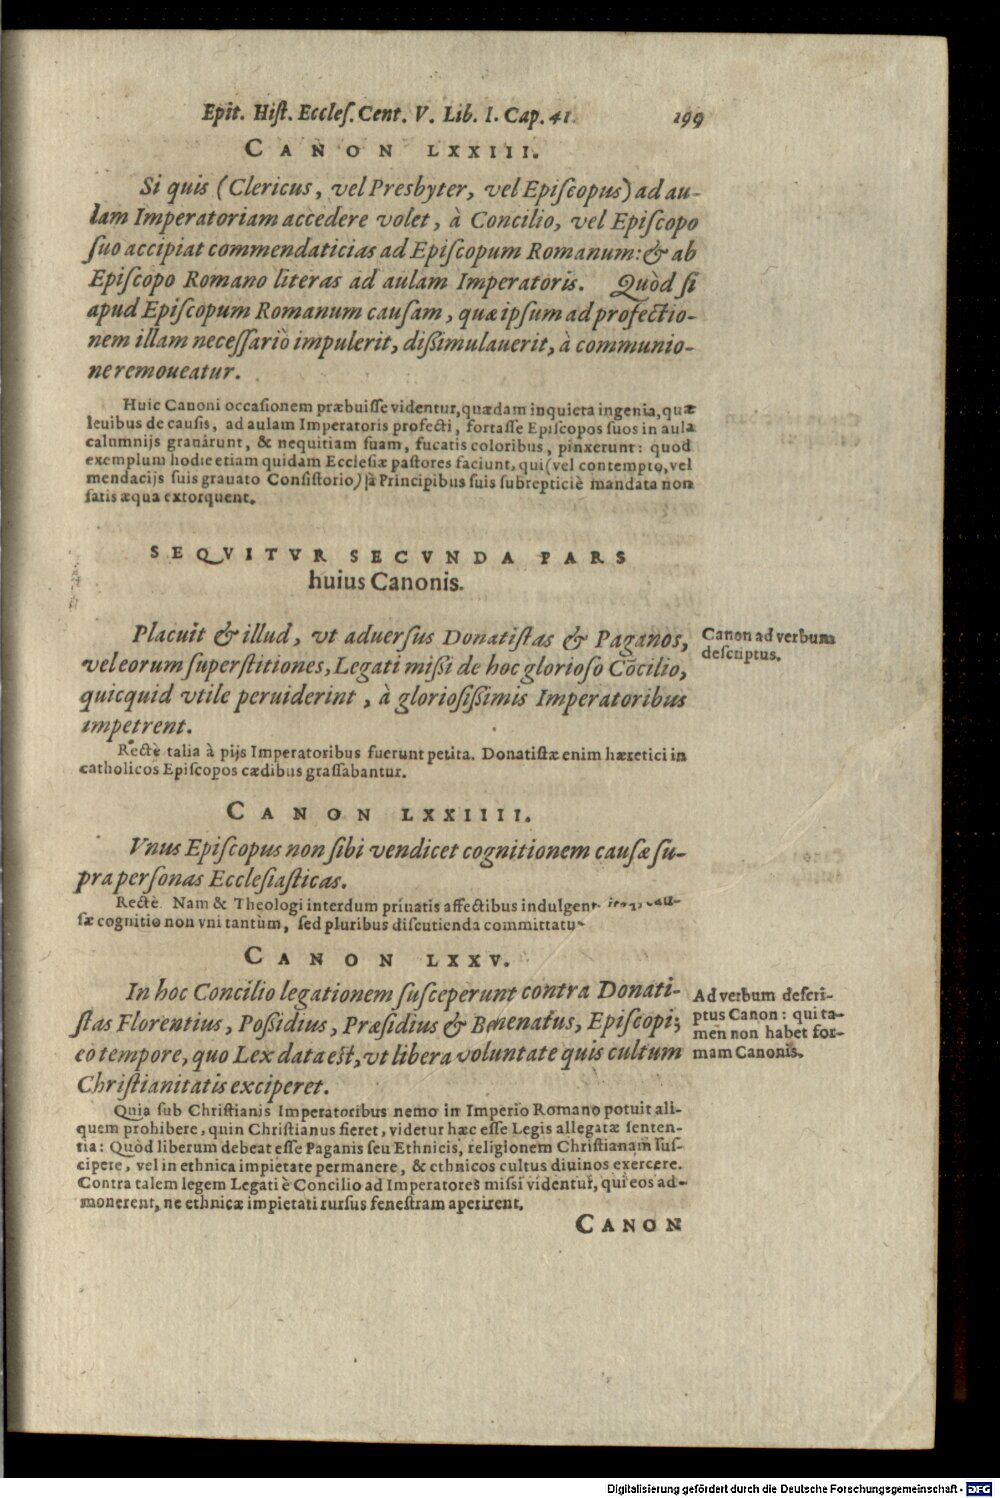 Epit. Hiſt. Eccleſ. Cent. V. Lib. I. Cap. 41. 199
CANON LXXIII.
Si quis (Clericus, vel Presbyter, vel Epiſcopus) ad au-
lam Imperatoriam accedere volet, à Concilio, vel Epiſcopo
ſuo accipiat commendaticias ad Epiſcopum Romanum: & ab
Epiſcopo Romano literas ad aulam Imperatoris. Quòd ſi
apud Epiſcopum Romanum cauſam, quæ ipſum ad profectio-
nem illam neceſſariò impulerit, dißimulauerit, à communio-
ne remoueatur.
Huic Canoni occaſionem præbuiſſe videntur, quædam inquieta ingenia, quæ
leuibus de cauſis, ad aulam Imperatoris profecti, fortaſſe Epiſcopos ſuos in aula
calumnijs grauârunt, & nequitiam ſuam, fucatis coloribus, pinxerunt: quod
exemplum hodie etiam quidam Eccleſiæ paſtores faciunt, qui (vel contempto, vel
mendacijs ſuis grauato Conſiſtorio) à Principibus ſuis ſubrepticiè mandata non
ſatis æqua extorquent.
SEQVITVR SECVNDA PARS
huius Canonis.
Placuit & illud, vt aduerſus Donatiſtas & Paganos,
vel eorum ſuperſtitiones, Legati mißi de hoc glorioſo Cōcilio,
quicquid vtile peruiderint, à glorioſißimis Imperatoribus
impetrent.
Canon ad verbum
deſcriptus.
Rectè talia à pijs Imperatoribus fuerunt petita. Donatiſtæ enim hæretici in
catholicos Epiſcopos cædibus graſſabantur.
CANON LXXIIII.
Vnus Epiſcopus non ſibi vendicet cognitionem cauſæ ſu-
pra perſonas Eccleſiaſticas.
Rectè. Nam & Theologi interdum priuatis affectibus indulgent
ſæ cognitio non vni tantùm, ſed pluribus diſcutienda committatur
CANON LXXV.
In hoc Concilio legationem ſuſceperunt contra Donati-
ſtas Florentius, Poßidius, Præſidius & Benenatus, Epiſcopi;
eo tempore, quo Lex data eſt, vt libera voluntate quis cultum
Chriſtianitatis exciperet.
Ad verbum deſcri-
ptus Canon: qui ta-
men non habet for-
mam Canonis.
Quia ſub Chriſtianis Imperatoribus nemo in Imperio Romano potuit ali-
quem prohibere, quin Chriſtianus fieret, videtur hæc eſſe Legis allegatæ ſenten-
tia: Quòd liberum debeat eſſe Paganis ſeu Ethnicis, religionem Chriſtianam ſuſ-
cipere, vel in ethnica impietate permanere, & ethnicos cultus diuinos exercere.
Contra talem legem Legati è Concilio ad Imperatores miſsi videntur, qui eos ad-
monerent, ne ethnicæ impietati rurſus feneſtram aperirent.
CANON
Digitalisierung gefördert durch die Deutsche Forschungsgemeinschaft - DFG